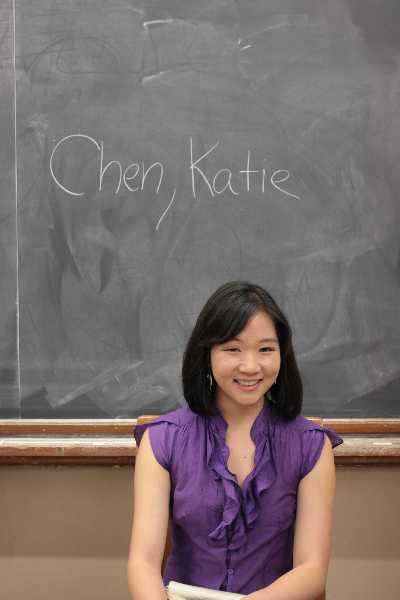 Chen, Katie